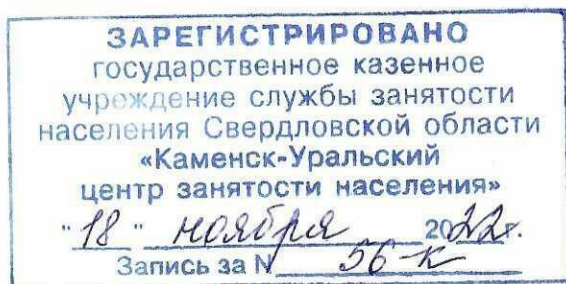 ЗАРЕГИСТРИРОВАНО
государственное казенное
учреждение службы занятости
населения Свердловской области
«Каменск-Уральский
центр занятости населения»
"18" ноября 2022г.
Запись за N 56-К